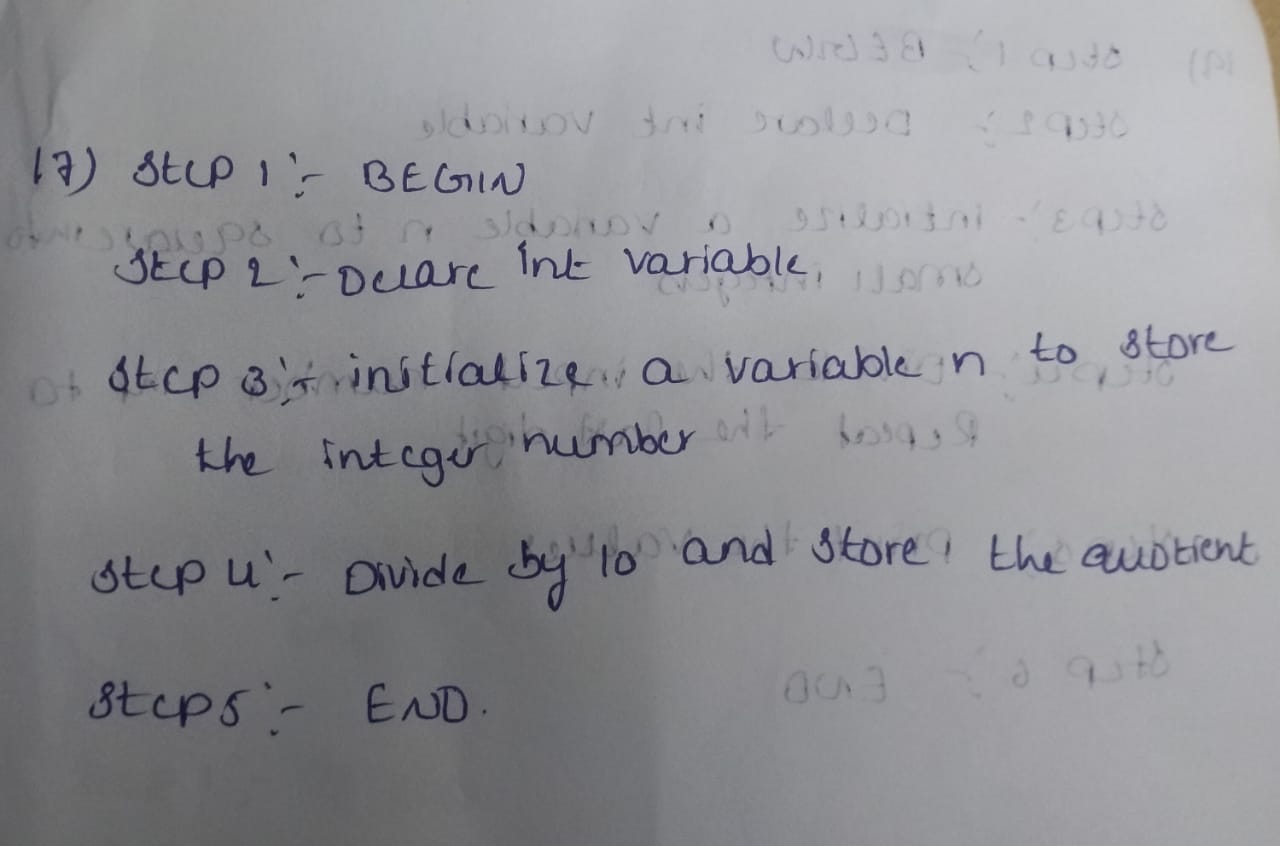 17) Step 1 :- BEGIN
Step 2 :- Delare int variable.
Step 3 :- initialize a variable n to store
the integer number
Step 4 :- Divide by 10 and store the quotient
Step 5 :- END.